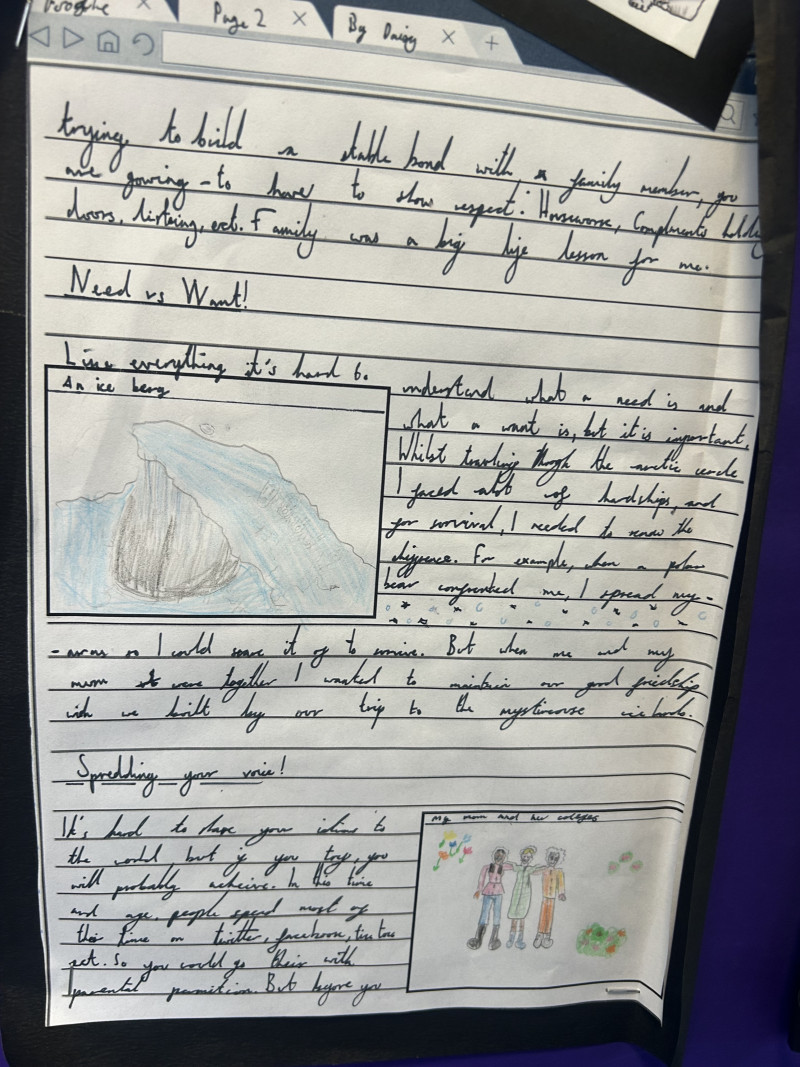 Page 2
By Daisy
trying to build a stable bond with a family member, you
are gowing - to have to show respect. Housework, Compliments holding
doors, listning, ect. Family was a big life lesson for me.
Need vs Want!
Like everything it's hard to
An ice berg
understand what a need is and
what a want is, but it is important.
Whilst traveling though the arctic circle
I faced alot of hardships, and
for survival, I needed to know the
difference. For example, when a polar
bear confronted me, I spread my-
-arms so I could scare it of to survive. But when me and my
mum were together I wanted to maintain our good friedship
wich we built by our trip to the
Spredding your voice!
It's hard to share your to
the world, but if you try, you
will probably acheive. In this time
and age, people spend most of
their time on twitter, facebook, tik tok
ect. So you could go their with
parental permition. But before you
My mom and her